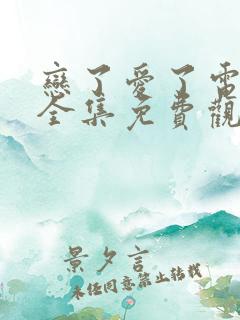 戀了愛了電
全集免費觀
景夕言
未经同意禁止转载